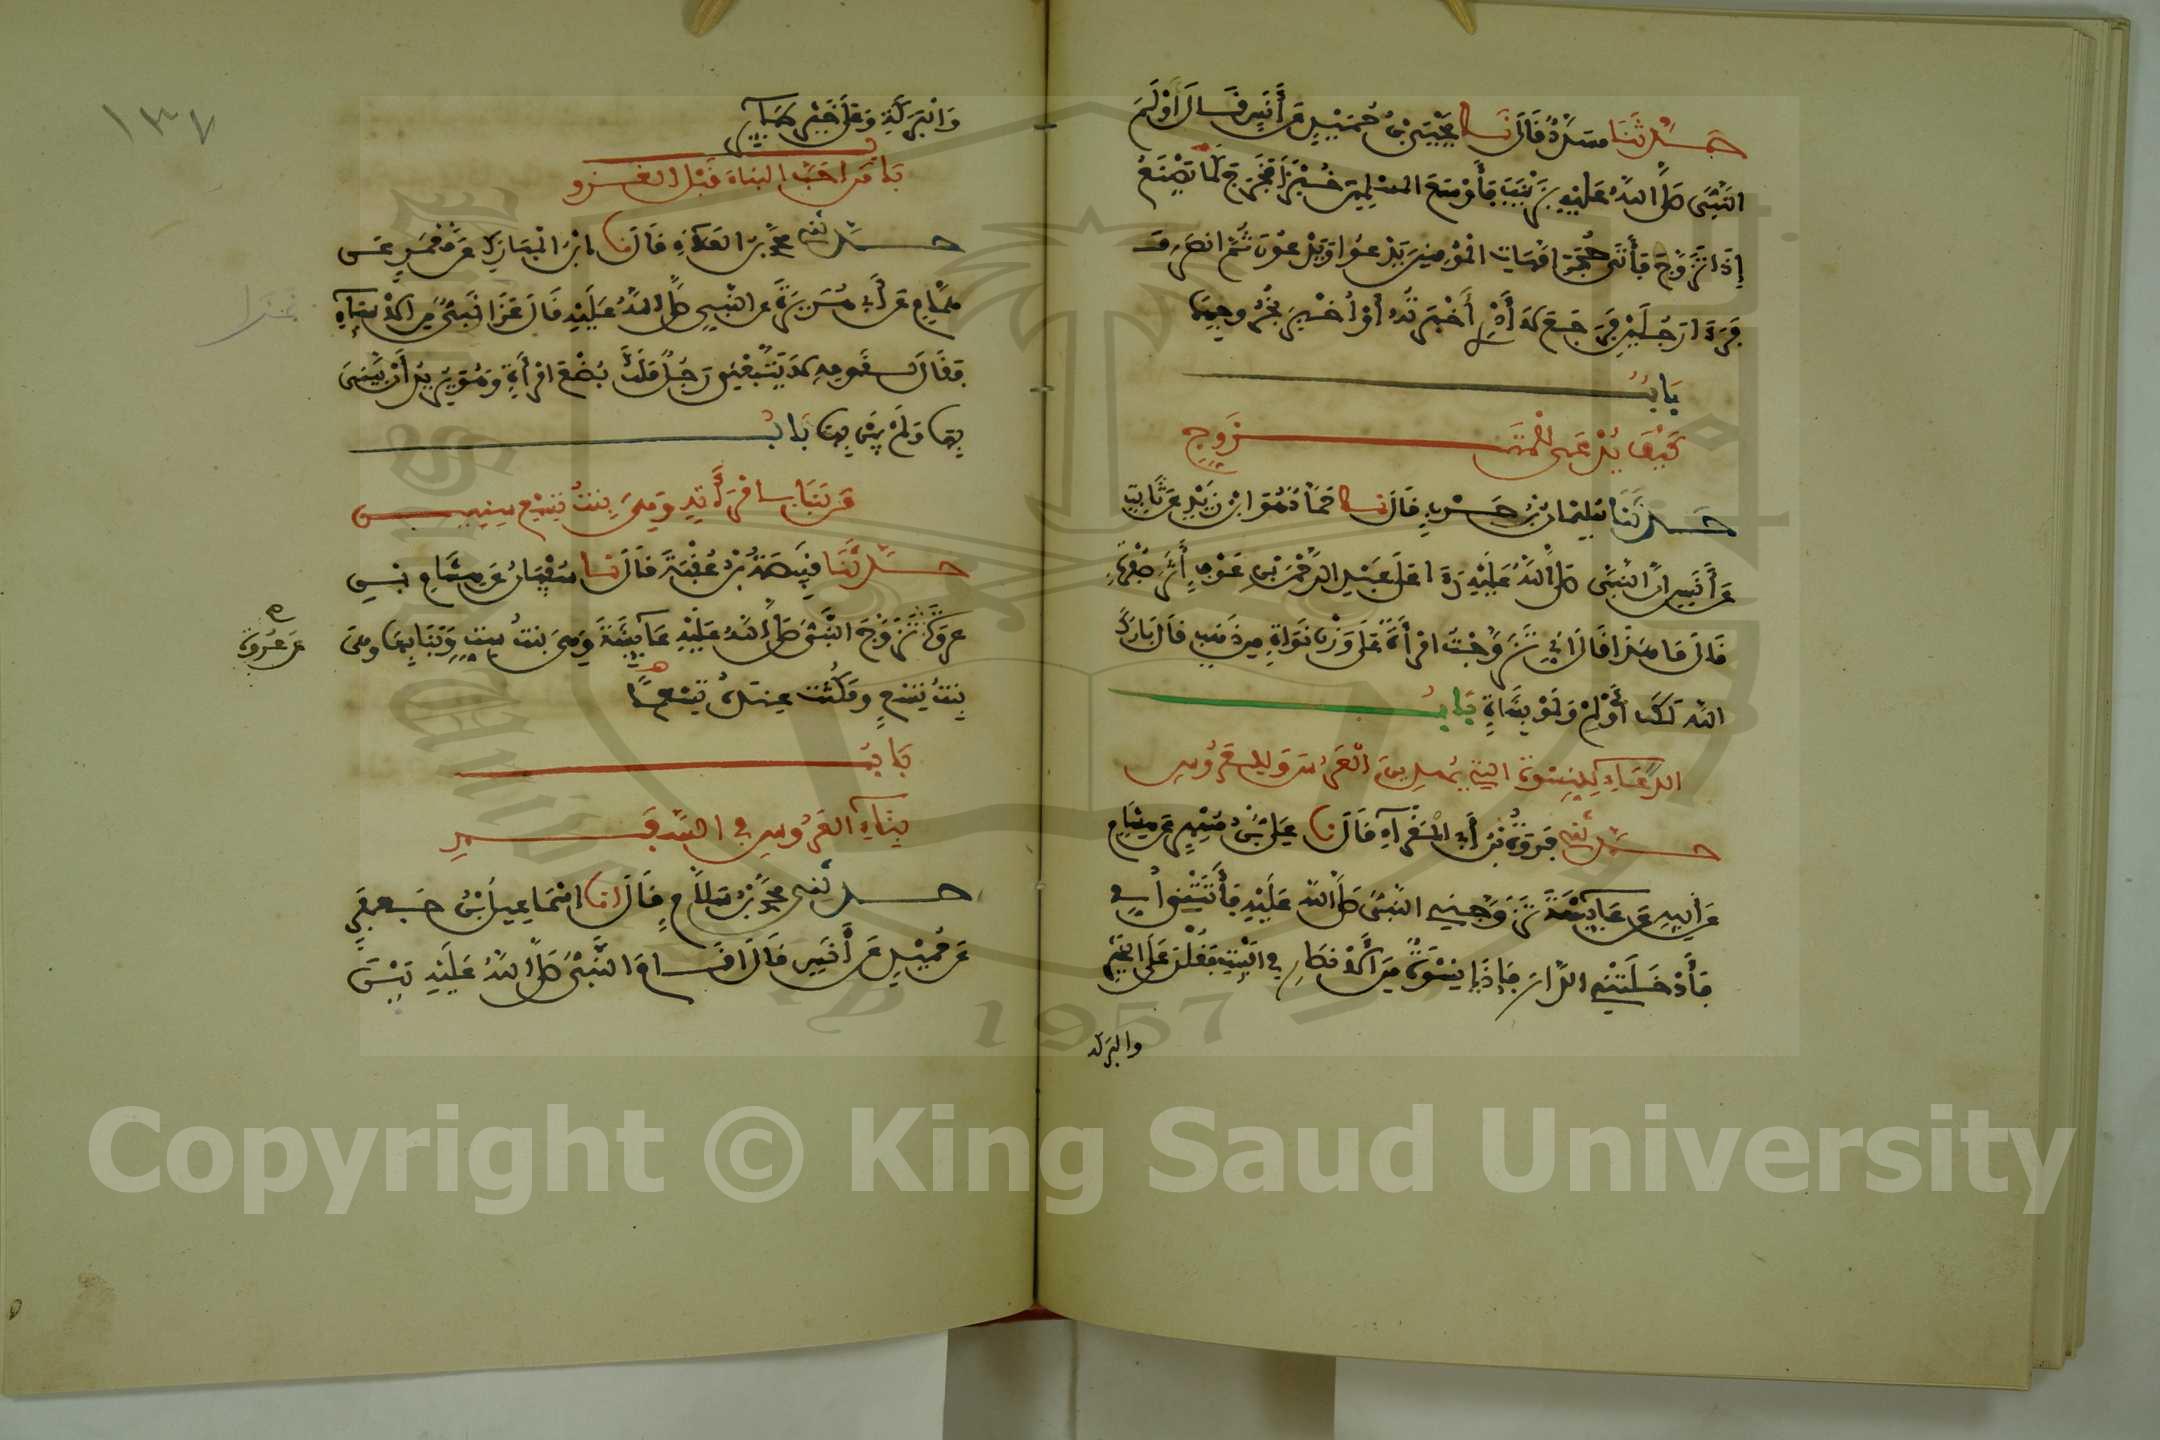 حدثنا مسدد قال نا يحيى بن حميد عن أنس قال أولم
النبي صلى الله عليه بزينب فأوسع المسلمين خيرا فخرج كما يصنع
إذا تزوج فأتى حجر امهات المومنين يدعوا ويدعون ثم انصرف
فرءا رجلين فرجع لا أدري أخبرته أو أخبر بخروجهما
باب
كيف يدعى للمتزوج
حدثنا سليمان بن حرب قال نا حماد هو ابن زيد عن ثابت
عن أنس ان النبي صلى الله عليه رءا على عبد الرحمن بن عوف أثر صفرة
قال ما هذا قال اني تزوجت امرأة على وزن نواة من ذهب قال بارك
الله لك أولم ولو بشاة باب
الدعاء للنسوة التي يهدين العروس وللعروس
حدثني فروة بن أبي المغراء قال نا علي بن مسهر عن هشام
عن أبيه عن عايشة تزوجني النبي صلى الله عليه فأتتني أمي
فأدخلتني الدار فإذا نسوة من الأنصار في البيت فقلن على الخير
والبركة
١٣٧
والبركة وعلى خير طاير
باب من احب البناء قبل الغزو
حدثني محمد بن العلاء قال نا ابن المبارك عن معمر عن
همام عن أبي هريرة عن النبي صلى الله عليه قال غزا نبي من الأنبياء
فقال لقومه لا يتبعني رجل ملك بضع امرأة وهو يريد أن يبني
بها ولم يبن بها باب
من بنا بامرأته وهي بنت تسع سنين
حدثنا قبيصة بن عقبة قال نا سفيان عن هشام بن
عروة تزوج النبي صلى الله عليه عايشة وهي بنت ست وبنا بها وهي
عن عروة
بنت تسع ومكثت عنده تسعا
باب
بناء العروس في السفر
حدثني محمد بن سلام قال انا اسماعيل بن جعفر
عن حميد عن أنس قال اقام النبي صلى الله عليه بين
Copyright © King Saud University
1957